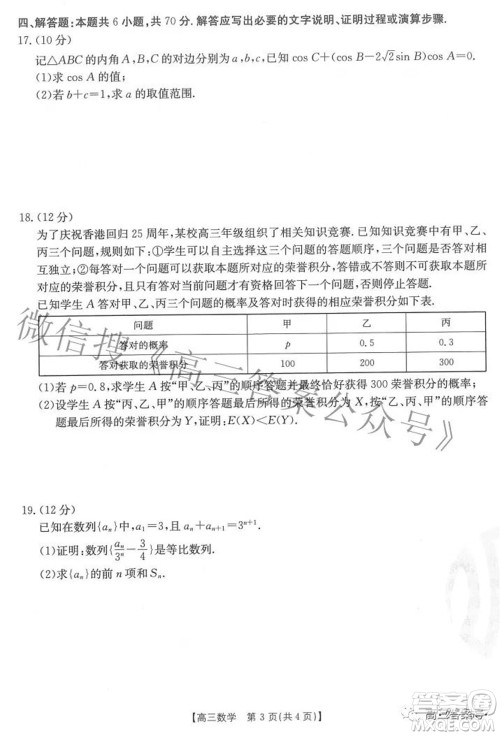 四、解答题:本题共 6 小题,共 70 分.解答应写出必要的文字说明、证明过程或演算步骤.
17.(10 分)
记△ABC 的内角 A,B,C 的对边分别为 a,b,c,已知 cos C+(cos B-2√2sin B)cos A=0.
(1)求 cos A 的值;
(2)若 b+c=1,求 a 的取值范围.
18.(12 分)
为了庆祝香港回归 25 周年,某校高三年级组织了相关知识竞赛.在知识竞赛中,有甲、乙、
丙三个问题,规则如下:①学生可以自主选择这三个问题的答题顺序,三个问题是否答对相
互独立;②每答对一个问题可以获取本题所对应的荣誉积分,并继续回答下一个问题,答错
则不可获取本题所对应的荣誉积分,且停止答题.
已知学生 A 答对甲、乙、丙三个问题的概率及答对时获得的荣誉积分如下表.
问题 甲 乙 丙
答对的概率 p 0.5 0.3
答对获取的荣誉积分 100 200 300
(1)若 p=0.8,求学生 A 按“甲、乙、丙”的顺序答题并最后恰好获得 300 荣誉积分的概率;
(2)设学生 A 按“丙、乙、甲”的顺序答题最后所得的荣誉积分为 X,按“乙、丙、甲”的顺序答
题最后所得的荣誉积分为 Y,证明:E(X)<E(Y).
19.(12 分)
已知在数列{aₙ}中,a₁=3,且 aₙ+aₙ₊₁=3ⁿ⁺¹.
(1)证明:数列{aₙ/3ⁿ-3/4}是等比数列.
(2)求{aₙ}的前 n 项和 Sₙ.
【高三数学 第 3 页(共 4 页)】
微信搜《高三答案公众号》